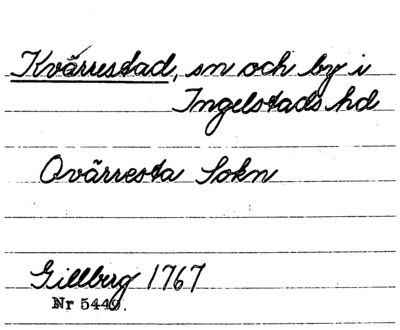 Kvärrestad, sn och by i
Ingelstads hd
Qvärresta Sokn
Gillberg 1767
Nr 5449.